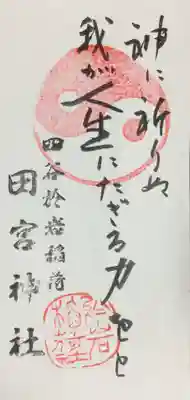 神に祈りぬ
我が人生にたぎる力を
四谷於岩稲荷
田宮神社